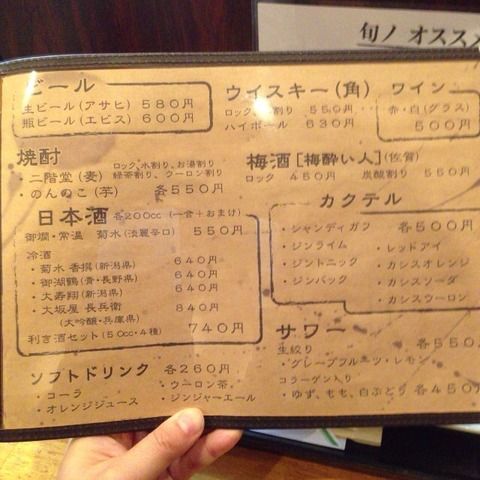 旬ノ オススメ
ビール
生ビール(アサヒ) 580円
瓶ビール(エビス) 600円
ウイスキー(角)
ロック、水割り 550円
ハイボール 630円
ワイン
赤・白(グラス)
500円
焼酎 ロック、水割り、お湯割り
緑茶割り、ウーロン割り
・二階堂(麦)
・のんのこ(芋) 各550円
梅酒[梅酔い人](佐賀)
ロック 450円 炭酸割り 550円
日本酒 各200cc(一合+おまけ)
御燗・常温 菊水(淡麗辛口) 550円
冷酒
・菊水 香撰(新潟県) 640円
・御湖鶴(青・長野県) 640円
・大寿翔(新潟県) 640円
・大坂屋 長兵衛 840円
(大吟醸・兵庫県)
利き酒セット(50cc・4種) 740円
カクテル
・シャンディガフ 各500円
・ジンライム ・レッドアイ
・ジントニック ・カシスオレンジ
・ジンバック ・カシスソーダ
・カシスウーロン
サワー
生絞り 各550
・グレープフルーツ・レモン
コラーゲン入り
・ゆず、もも、白ぶどう 各450
ソフトドリンク 各260円
・コーラ ・ウーロン茶
・オレンジジュース ・ジンジャーエール